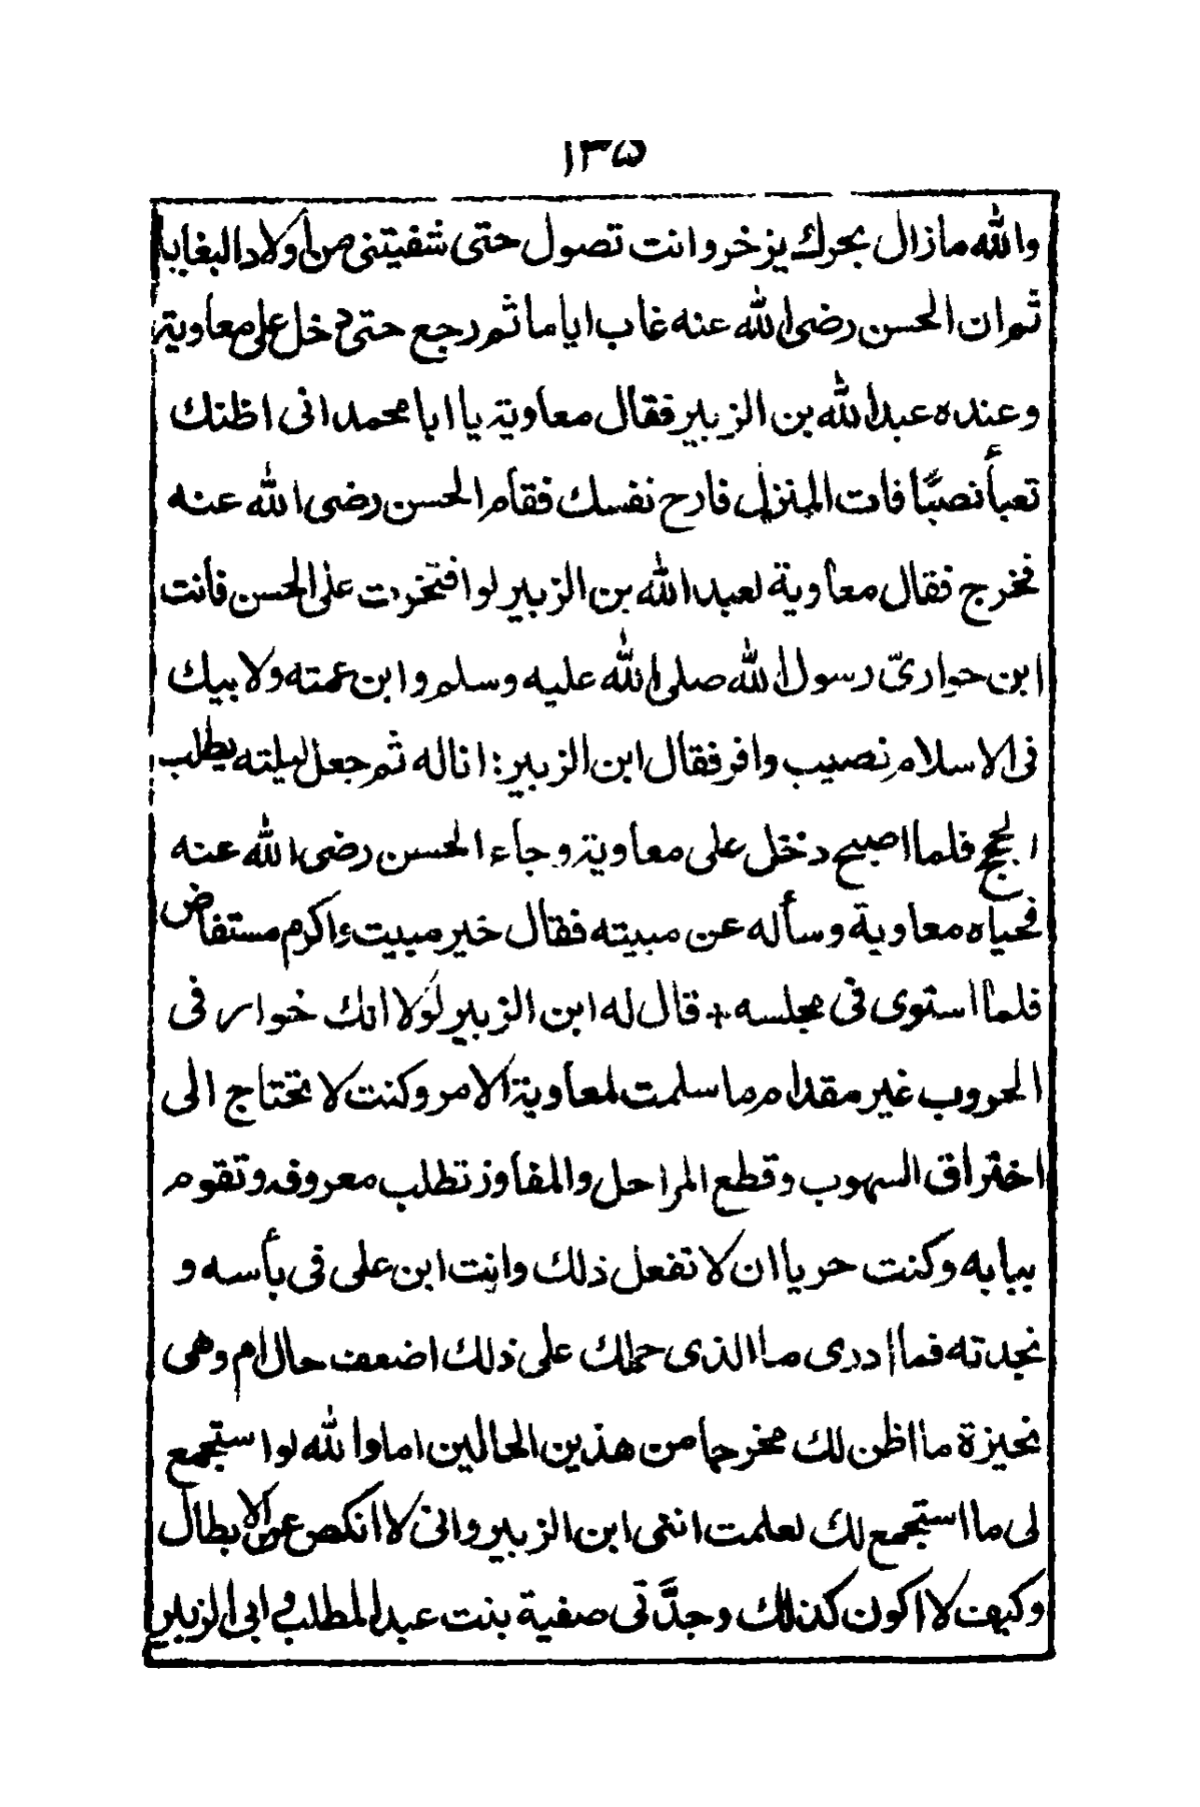 ١٣٥
والله مازال بحرك يزخر وانت تصول حتى شفيتنى من أولاد البغايا
ثم ان الحسن رضى الله عنه غاب اياما ثم رجع حتى دخل على معاوية
وعنده عبد الله بن الزبير فقال معاوية يا ابا محمد انى اظنك
تعبأ نصبًا فات المنزل فارح نفسك فقام الحسن رضى الله عنه
فخرج فقال معاوية لعبد الله بن الزبير لو افتخرت على الحسن فأنت
ابن حوارىّ رسول الله صلى الله عليه وسلم وابن عمته ولابيك
فى الاسلام نصيب وافر فقال ابن الزبير: انا له ثم جعل ليلته يطلب
الحجج فلما اصبح دخل على معاوية وجاء الحسن رضى الله عنه
فحياه معاوية وسأله عن مبيته فقال خير مبيت واكرم مستفاض
فلما استوى فى مجلسه + قال له ابن الزبير لولا انك خوار فى
الحروب غير مقدام ما سلمت لمعاوية الامر وكنت لا تحتاج الى
اختراق السهوب وقطع المراحل والمفاوز تطلب معروفه وتقوم
ببابه وكنت حريا ان لا تفعل ذلك وانت ابن على فى بأسه و
نجدته فما ادرى ما الذى حملك على ذلك اضعف حال ام وهى
نحيزة ما اظن لك مخرجا من هذين الحالين اما والله لو استجمع
لى ما استجمع لك لعلمت اننى ابن الزبير وانى لا انكص عن الابطال
وكيف لا اكون كذلك وجدَّتى صفية بنت عبد المطلب وابى الزبير